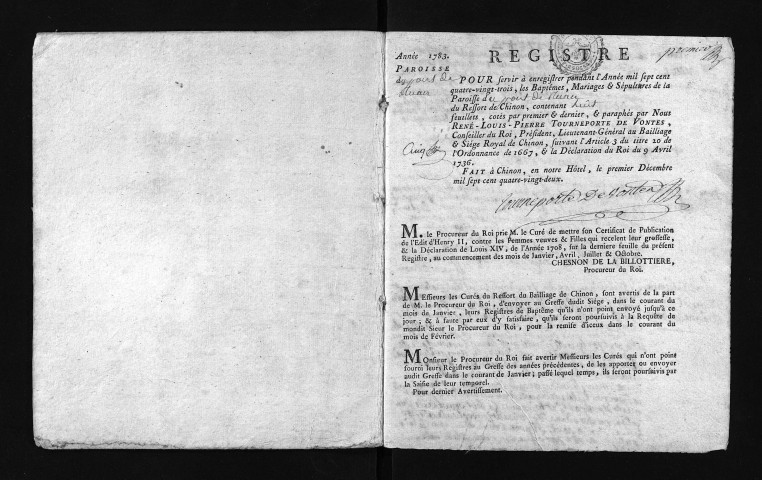 Année 1783. REGISTRE premier
PAROISSE
du pont de
POUR servir à enregistrer pendant l'Année mil sept cent
quatre-vingt-trois, les Baptêmes, Mariages & Sépultures de la
Paroisse du pont de
du Ressort de Chinon, contenant huit
feuillets, cotés par premier & dernier, & paraphés par Nous
RENÉ-LOUIS-PIERRE TOURNEPORTE DE VONTES,
Conseiller du Roi, Président, Lieutenant-Général au Bailliage
& Siége Royal de Chinon, suivant l'Article 3 du titre 20 de
l'Ordonnance de 1667, & la Déclaration du Roi du 9 Avril
1736.
FAIT à Chinon, en notre Hôtel, le premier Décembre
mil sept cent quatre-vingt-deux.
tourneporte De Vontes
M. le Procureur du Roi prie M. le Curé de mettre son Certificat de Publication
de l'Edit d'Henry II, contre les Femmes veuves & Filles qui recelent leur grossesse,
& la Déclaration de Louis XIV, de l'Année 1708, sur la derniere feuille du présent
Registre, au commencement des mois de Janvier, Avril, Juillet & Octobre.
CHESNON DE LA BILLOTTIERE,
Procureur du Roi.
MEssieurs les Curés du Ressort du Bailliage de Chinon, sont avertis de la part
de M. le Procureur du Roi, d'envoyer au Greffe dudit Siége, dans le courant du
mois de Janvier, leurs Registres de Baptême qu'ils n'ont point envoyé jusqu'à ce
jour; & à faute par eux d'y satisfaire, qu'ils seront poursuivis à la Requête de
mondit Sieur le Procureur du Roi, pour la remise d'iceux dans le courant du
mois de Février.
MOnsieur le Procureur du Roi fait avertir Messieurs les Curés qui n'ont point
fourni leurs Registres au Greffe des années précédentes, de les apporter ou envoyer
audit Greffe dans le courant de Janvier; passé lequel temps, ils seront poursuivis par
la Saisie de leur temporel.
Pour dernier Avertissement.